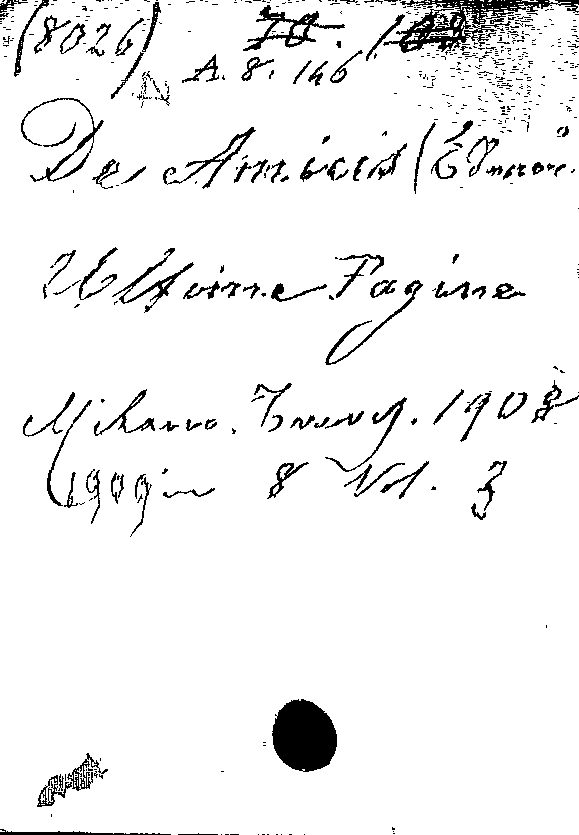 (8026) 70. 103
A. 8. 146
De Amicis (Edmon.
Ultime Pagine
Milano. Treves. 1908
1909 in 8 Vol. 3